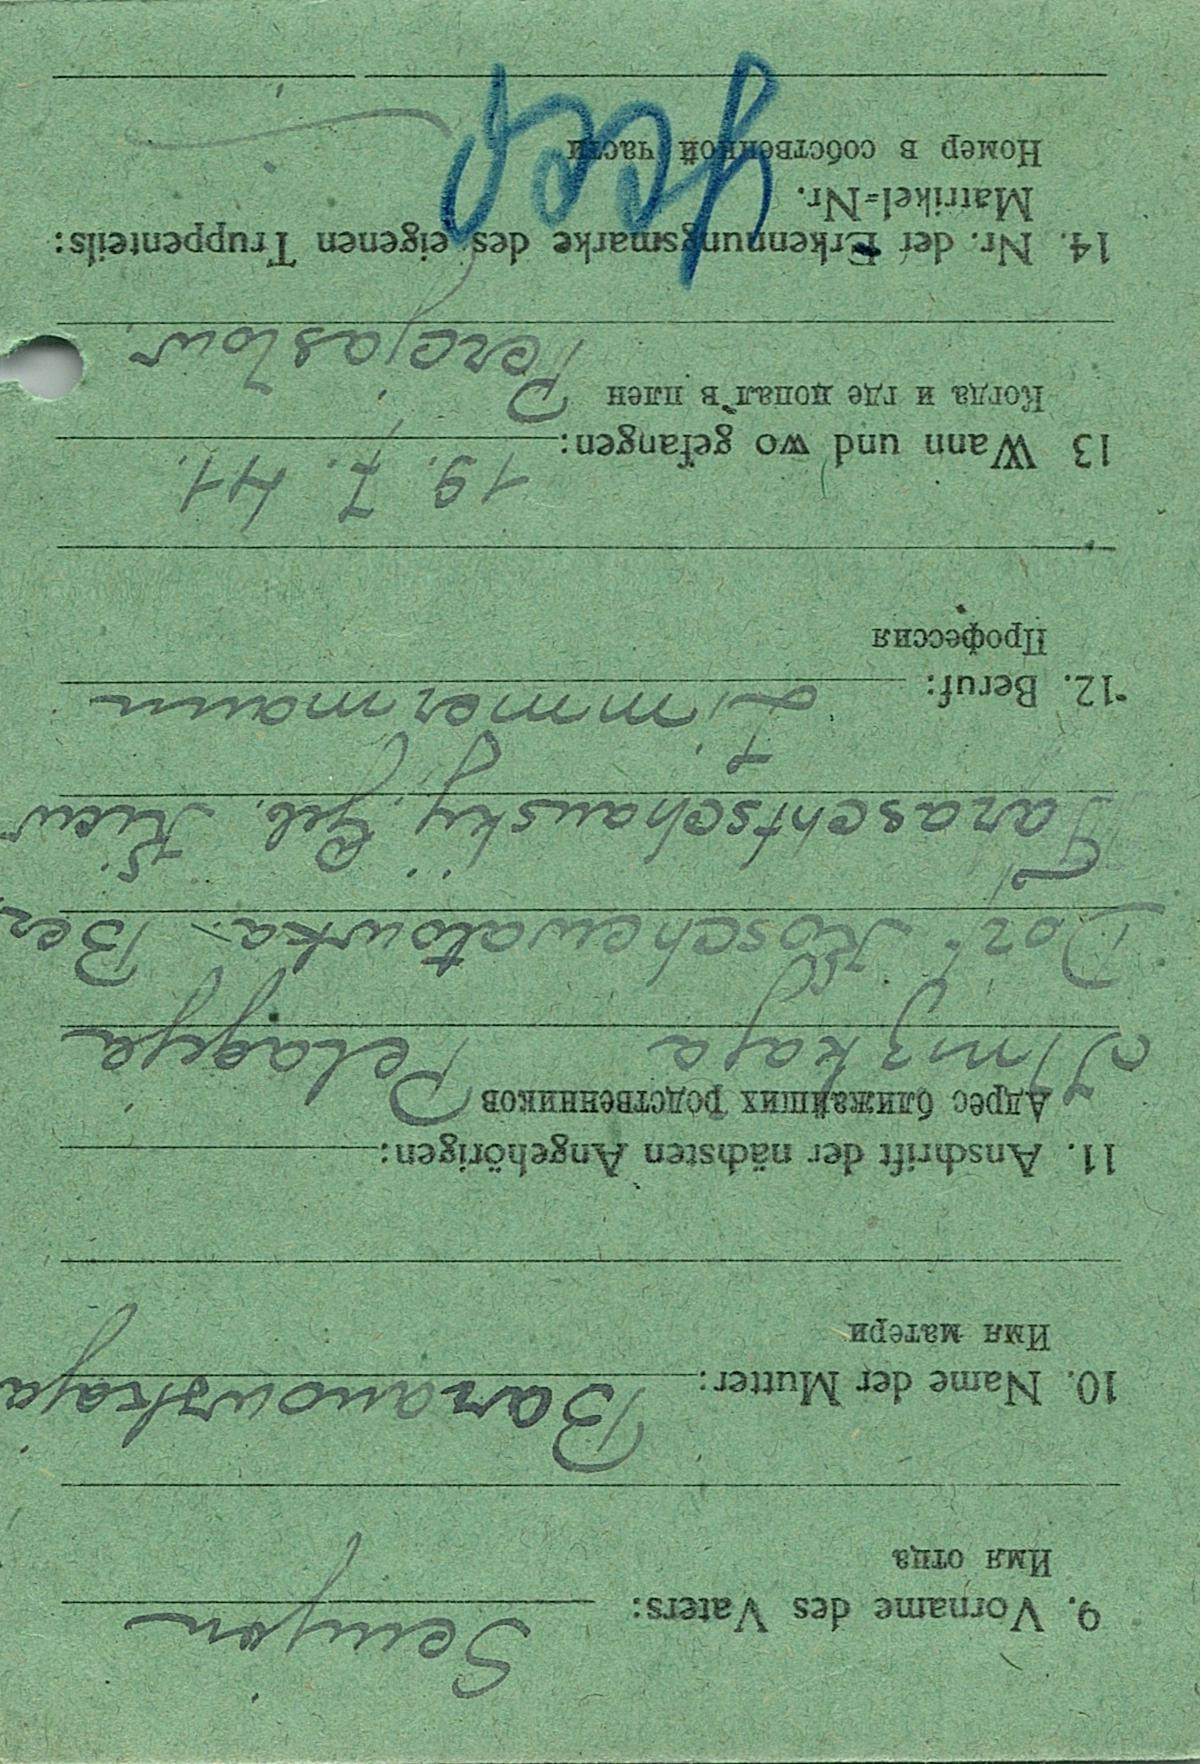 9. Vorname des Vaters: Semjon
Имя отца
10. Name der Mutter: Baranowskaja
Имя матери
11. Anschrift der nächsten Angehörigen:
Адрес ближайших родственников
Pelageja
Dorf Koschewatowka. Bez.
Taraschtschanskij. Geb. Kiew
12. Beruf: Zimmermann
Профессия
13 Wann und wo gefangen: 19. 7. 41.
Когда и где попал в плен Perejaslow.
14. Nr. der Erkennungsmarke des eigenen Truppenteils:
Matrikel=Nr.
Номер в собственной части